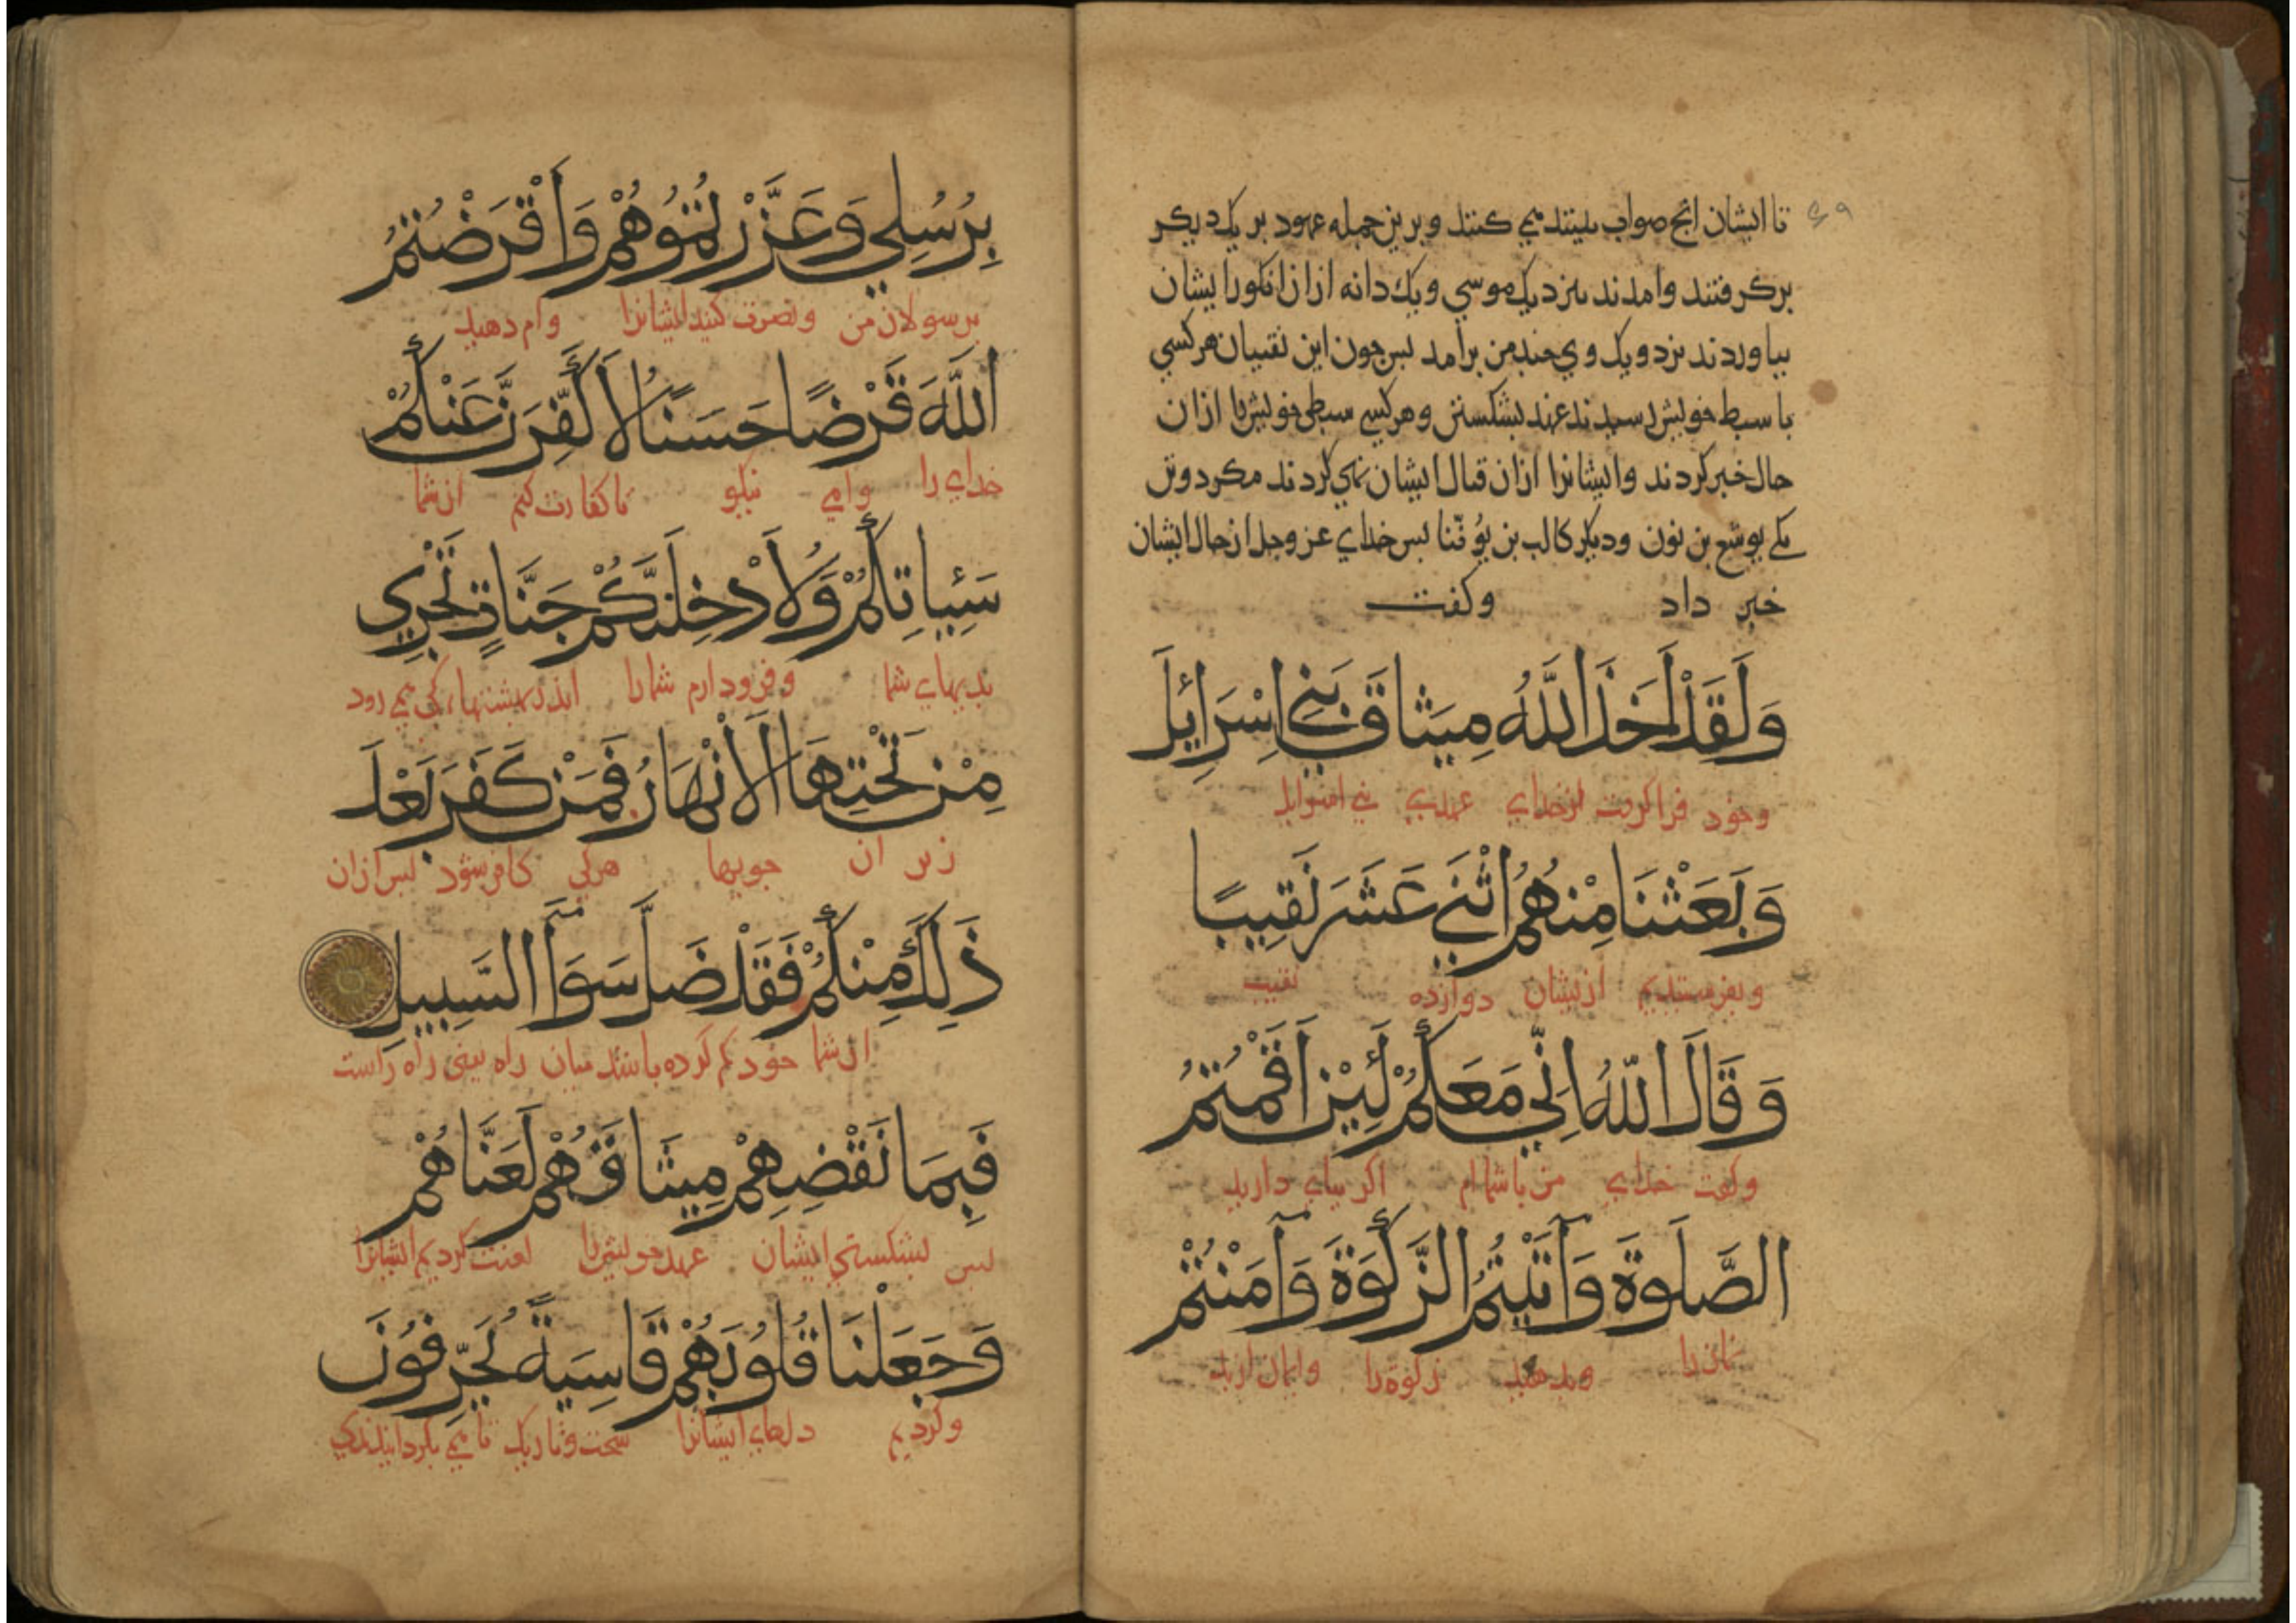 تا ایشان انج صواب بینند می کنند و برین جمله عهود بر یک دیکر
برکرفتند و امدند بنزدیک موسی و یک دانه ازان انکور ایشان
بیاوردند نزدویک وی جند من برامد بس جون این نقیبان هرکسی
با سبط خویش رسیدند عهد بشکستن وهرکسی سبطی خویش را ازان
حال خبر کردند وایشانرا ازان قتال ایشان نهی کردند مکر دو تن
یکی یوشع بن نون ودیکر کالب بن یُوفَنّا بس خدای عز وجل از حال ایشان
خبر داد وکفت
وَلَقَدْ اَخَذَ اللَّهُ مِيثَاقَ بَنِي اِسْرَائِيلَ
وخود فراکرفت خدای عهدی بنی اسرایل
وَبَعَثْنَا مِنْهُمُ اثْنَيْ عَشَرَ نَقِيبًا
وبفرستیدیم ازیشان دوازده نقیب
وَقَالَ اللَّهُ اِنِّي مَعَكُمْ لَئِنْ اَقَمْتُمُ
وکفت خدای من باشماام اکر بپای دارید
الصَّلوةَ وَآتَيْتُمُ الزَّكَوةَ وَآمَنْتُمْ
نماز را وبدهید زکوة را وایمان ارید
بِرُسُلِي وَعَزَّرْتُمُوهُمْ وَاَقْرَضْتُمُ
برسولان من ونصرت کنید ایشانرا وام دهید
اللَّهَ قَرْضًا حَسَنًا لَاُكَفِّرَنَّ عَنْكُمْ
خدای را وامی نیکو تا کفارت کنم از شما
سَيِّئَاتِكُمْ وَلَاُدْخِلَنَّكُمْ جَنَّاتٍ تَجْرِي
بدیهای شما وفرود ارم شما را اندر بهشتها کی می رود
مِنْ تَحْتِهَا الْاَنْهَارُ فَمَنْ كَفَرَ بَعْدَ
زیر ان جویها هرکی کافر شود بس ازان
ذَلِكَ مِنْكُمْ فَقَدْ ضَلَّ سَوَآءَ السَّبِيلِ
از شما خود کم کرده باشد میان راه یعنی راه راست
فَبِمَا نَقْضِهِمْ مِيثَاقَهُمْ لَعَنَّاهُمْ
بس بشکستی ایشان عهد خویش را لعنت کردیم ایشانرا
وَجَعَلْنَا قُلُوبَهُمْ قَاسِيَةً يُحَرِّفُونَ
وکردیم دلهای ایشانرا سخت وتاریک تا می بکردانیدندی